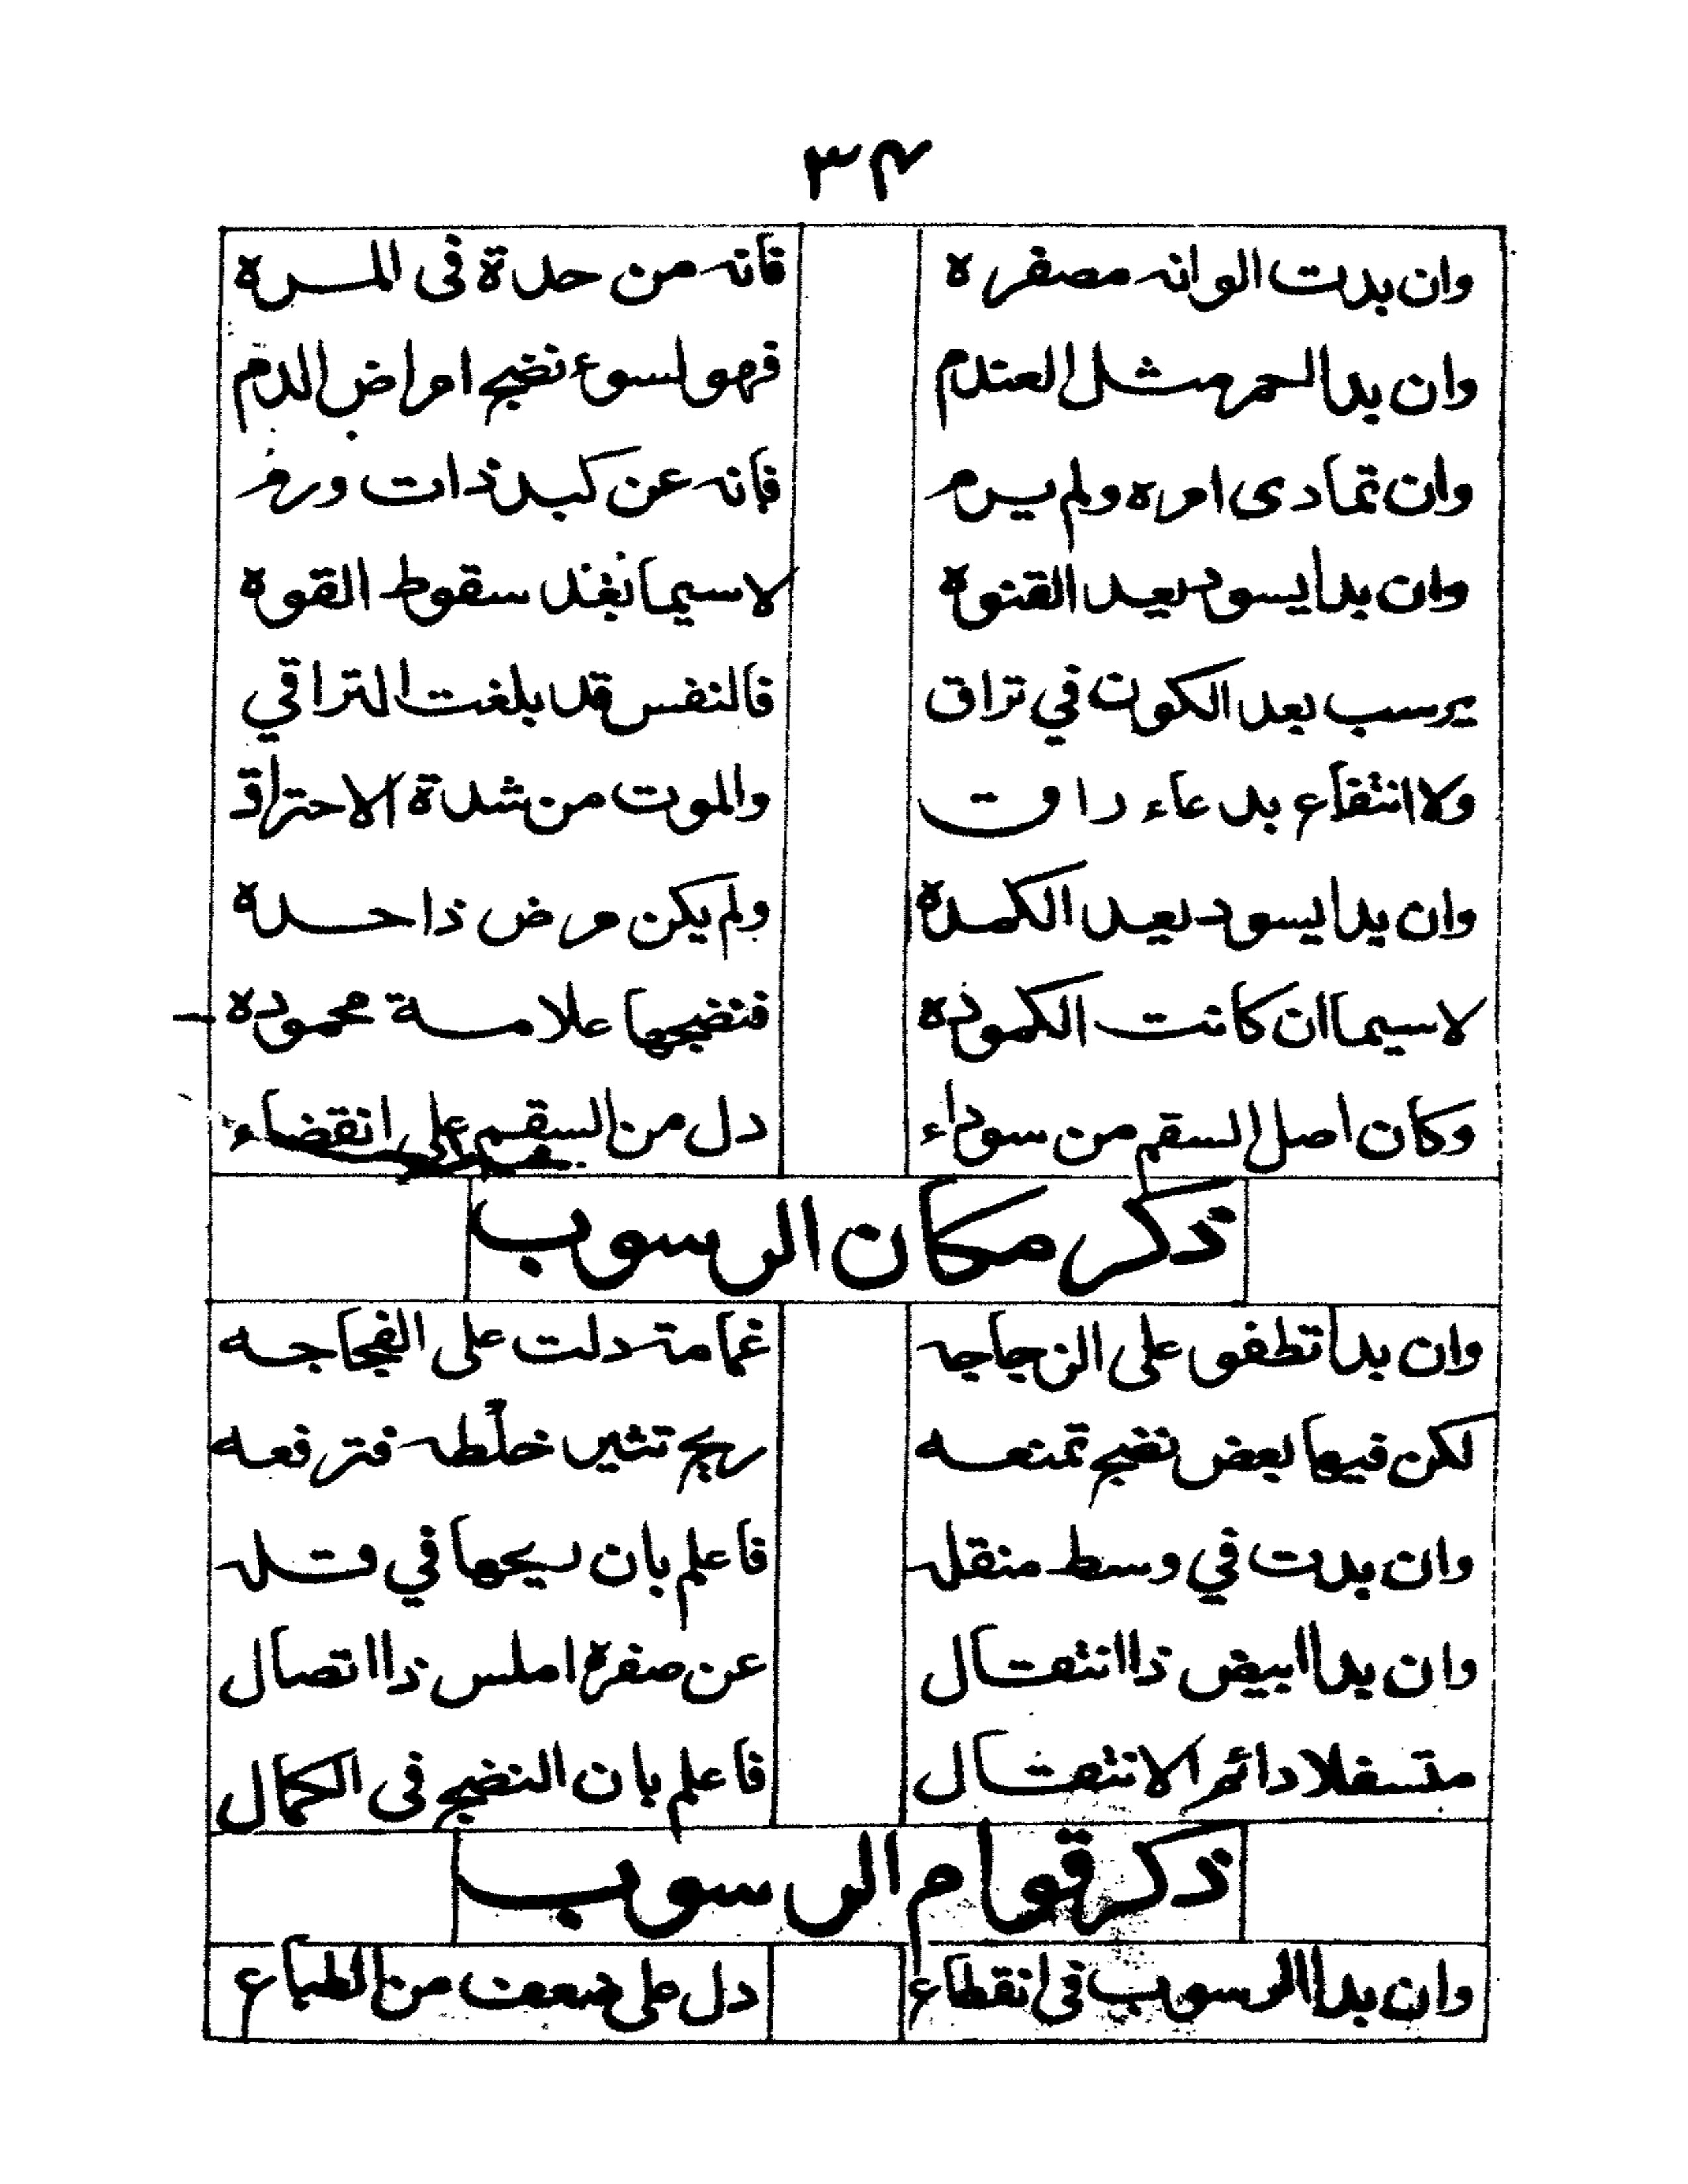 ٣٤
وان بدت الوانه مصفره فانه من حدة فى المره
وان بدا احمر مثل العندم فهو لسوء نضج امراض الدم
وان تمادى امره ولم يرم فانه عن كبد ذات ورم
وان بدا يسود بعد القنوه لا سيما بعد سقوط القوه
يرسب بعد الكون في تراق فالنفس قد بلغت التراقي
ولا انتفاع بدعاء راق والموت من شدة الاحتراق
وان بدا يسود بعد الكمده ولم يكن مرض ذا حده
لا سيما ان كانت الكموده فنضجها علامة محموده
وكان اصل السقم من سوداء دل من السقم على انقضاء
ذكر مكان الرسوب
وان بدا تطفو على الزجاجه غمامة دلت على الفجاجه
لكن فيها بعض نضج تمنعه ريح تثير خلطه فترفعه
وان بدت في وسط منقله فاعلم بان ريحها في قله
وان بدا ابيض ذا انتقال عن صفرة املس ذا اتصال
متسفلا دائم الانتقال فاعلم بان النضج فى الكمال
ذكر قوام الرسوب
وان بدا الرسوب فى انقطاع دل على ضعف من الطباع